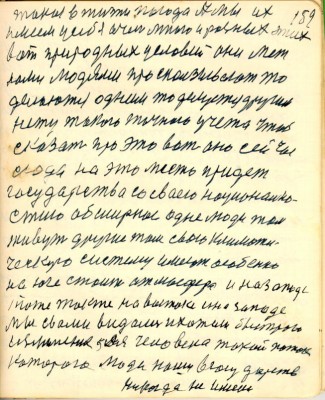 такая в жизни погода А мы их
имеем у себя очень много и разных этих
вот природных условий они мет
лами людями про сказывают то
делаются одним то допустим другим
нету такого точного учета чтоб
сказат про это вот оно сей час
сюда на это место придет
государства со своего национально
стию обширное одне люди там
живут другие там свою климати
ческую систему имеют особенно
на юге стоит атмосфера и на западе
тоже так же на востоке и на западе
мы своими видами хотим быстрого
для человека такой
которого люди наши в государстве
никогда не имели
189